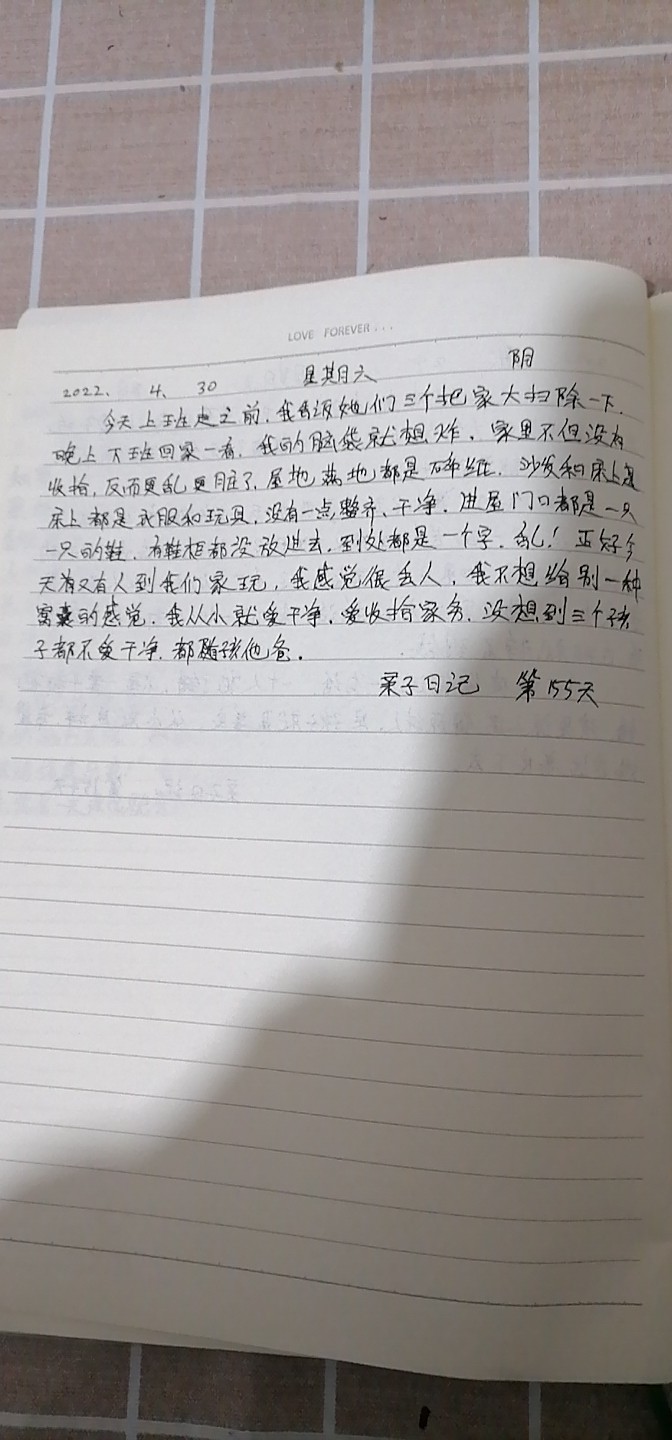 LOVE FOREVER...
2022. 4. 30 星期六 阴
今天上班走之前,我告诉她们三个把家大扫除一下.
晚上下班回家一看,我的脑袋就想炸,家里不但没有
收拾,反而更乱更脏了,屋地满地都是碎纸.沙发和床上
床上都是衣服和玩具,没有一点整齐、干净.进屋门口都是一只
一只的鞋,有鞋柜都没放进去,到处都是一个字,乱!正好今
天有又有人到我们家玩,我感觉很丢人,我不想给别一种
窝囊的感觉.我从小就爱干净,爱收拾家务,没想到三个孩
子都不爱干净.都随孩他爸.
日记 第155天